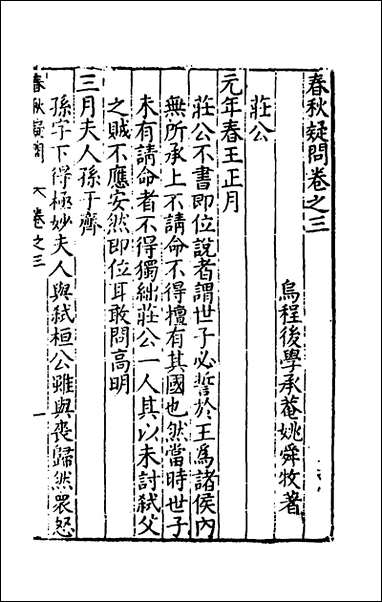 春秋疑問卷之三
烏程後學承菴姚舜牧著
莊公
元年春王正月
莊公不書即位說者謂世子必誓於王為諸侯內
無所承上不請命不得擅有其國也然當時世子
未有請命者不得獨絀莊公一人其以未討弒父
之賊不應安然即位耳敢問高明
三月夫人孫于齊
孫字下得極妙夫人與弒桓公雖與喪歸然衆怒
春秋疑問 卷之三 一